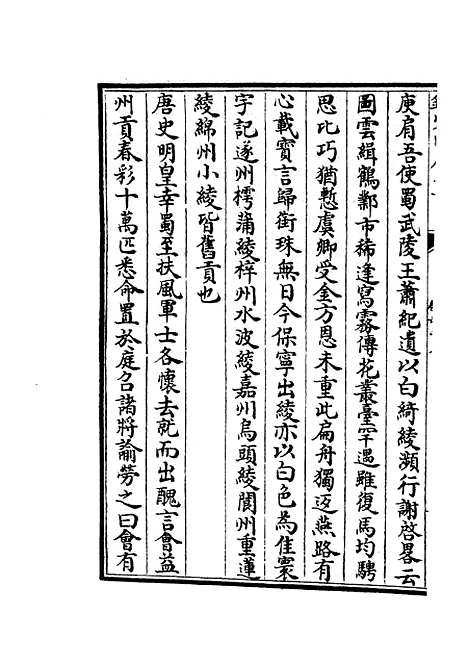 庾肩吾使蜀武陵王蕭紀遺以白綺綾瀕行謝啓畧云
圖雲緝鶴鄴市稀逢寫霧傳花叢臺罕遇雖復馬均騁
思比巧猶慙虞卿受金方恩未重此扁舟獨返燕路有
心載寳言歸銜珠無日今保寧出綾亦以白色為佳寰
宇記遂州樗蒲綾梓州水波綾嘉州烏頭綾閬州重蓮
綾綿州小綾皆舊貢也
唐史明皇幸蜀至扶風軍士各懐去就而出醜言會益
州貢春彩十萬匹悉命置於庭召諸將諭勞之曰㑹有